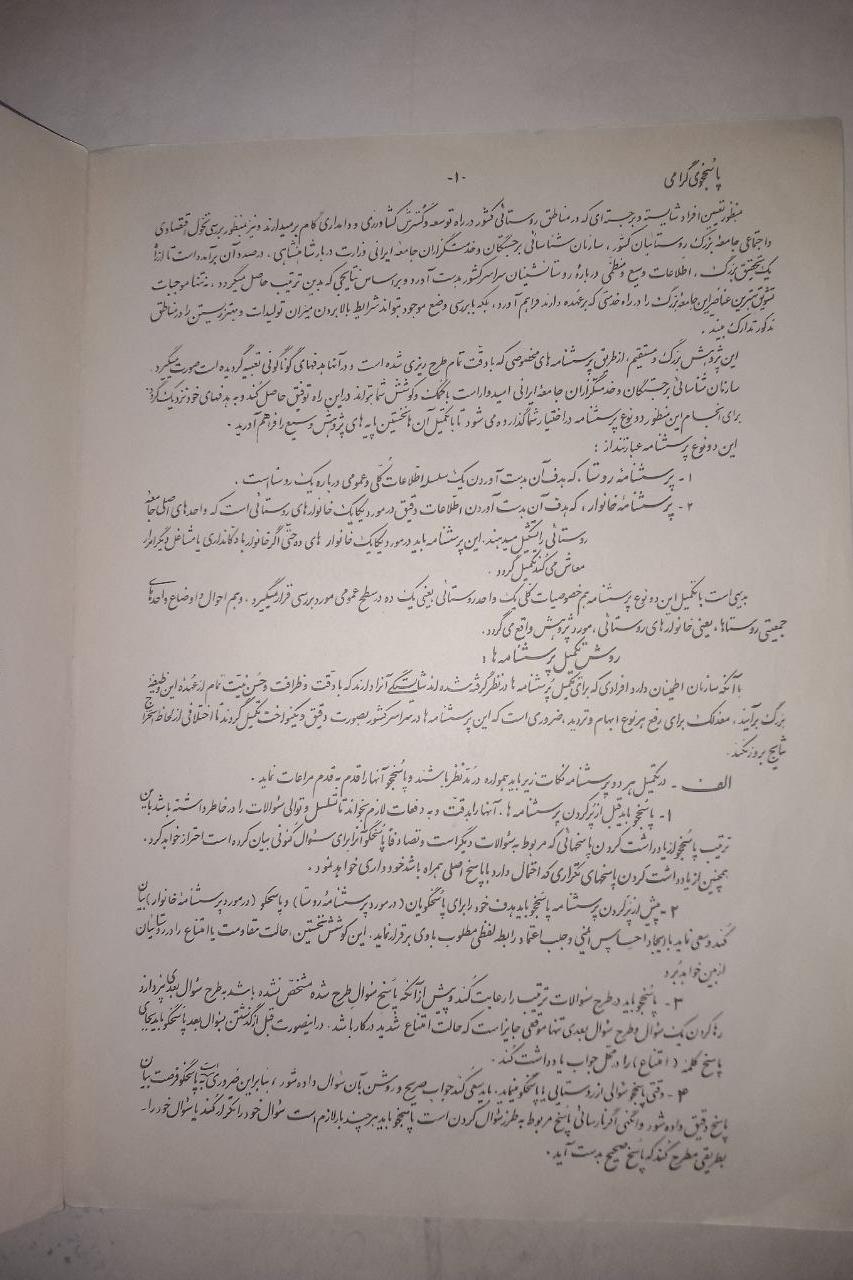 پاسخجوی گرامی
-۱-
بمنظور تعیین افراد شایسته و برجسته ای که در مناطق روستائی کشور در راه توسعه و گسترش کشاورزی و دامداری گام برمیدارند و نیز بمنظور بررسی تحول اقتصادی
و اجتماعی جامعه بزرگ روستانیان کشور ، سازمان شناسائی برجستگان و خدمتگزاران جامعه ایرانی وزارت دربار شاهنشاهی ، درصدد آن برآمده است تا از راه
یک تحقیق بزرگ ، اطلاعات وسیع و منظمی درباره روستانشینیان سراسر کشور بدست آورد و براساس نتایجی که بدین ترتیب حاصل میگردد ، نه تنها موجبات
تشویق مهمترین عناصر این جامعه بزرگ را در راه خدمتی که برعهده دارند فراهم آورد ، بلکه با بررسی وضع موجود بتواند شرایط بالا بردن میزان تولیدات و بهتر زیستن را در مناطق
مذکور تدارک ببیند .
این پژوهش بزرگ و مستقیم ، از طریق پرسشنامه های مخصوصی که با دقت تمام طرح ریزی شده است و در آنها هدفهای گوناگونی تعبیه گردیده است صورت میگیرد .
سازمان شناسائی برجستگان و خدمتگزاران جامعه ایرانی امیدوار است با کمک و کوشش شما بتواند در این راه توفیق حاصل کند و به هدفهای خود نزدیک گردد .
برای انجام این منظور دو نوع پرسشنامه در اختیار شما گذارده می شود تا با تکمیل آن ها نخستین پایه های پژوهش وسیع را فراهم آورید .
این دو نوع پرسشنامه عبارتند از :
۱ - پرسشنامه روستا ، که هدف آن بدست آوردن یک سلسله اطلاعات کلی و عمومی درباره یک روستا است .
۲ - پرسشنامه خانوار ، که هدف آن بدست آوردن اطلاعات دقیق در مورد یکایک خانوارهای روستائی است که واحدهای اصلی جامعه
روستائی را تشکیل میدهند . این پرسشنامه باید در مورد یکایک خانوار های ده حتی اگر خانوار با دکانداری یا مشاغل دیگر امرار
معاش می کند تکمیل گردد .
بدیهی است با تکمیل این دو نوع پرسشنامه هم خصوصیات کلی یک واحد روستائی یعنی یک ده در سطح عمومی مورد بررسی قرار میگیرد . و هم احوال و اوضاع واحدهای
جمعیتی روستاها ، یعنی خانوارهای روستائی ، مورد پژوهش واقع می گردد .
روش تکمیل پرسشنامه ها :
با آنکه سازمان اطمینان دارد افرادی که برای تکمیل پرسشنامه ها در نظر گرفته شده اند شایستگی آنرا دارند که با دقت و ظرافت و حسن نیت تمام از عهده این وظیفه
بزرگ برآیند ، معذلک برای رفع هر نوع ابهام و تردید ، ضروری است که این پرسشنامه ها در سراسر کشور بصورت دقیق و یکنواخت تکمیل گردند تا اختلافی از لحاظ استخراج
نتایج بروز نکند .
الف - در تکمیل هر دو پرسشنامه نکات زیر باید همواره در مد نظر باشند و پاسخجو آنها را قدم به قدم مراعات نماید .
۱ - پاسخجو باید قبل از پر کردن پرسشنامه ها ، آنها را بدقت و به دفعات لازم بخواند تا تسلسل و توالی سئوالات را در خاطر داشته باشد باین
ترتیب پاسخجو از یادداشت کردن پاسخهائی که مربوط به سئوالات دیگر است و تصادفاً پاسخگو آنرا برای سئوال کنونی بیان کرده است احتراز خواهد کرد .
همچنین از یادداشت کردن پاسخهای تکراری که احتمال دارد با پاسخ اصلی همراه باشد خودداری خواهد نمود .
۲ - پیش از پر کردن پرسشنامه پاسخجو باید هدف خود را برای پاسخگویان ( در مورد پرسشنامه روستا ) و پاسخگو ( در مورد پرسشنامه خانوار ) بیان
کند و سعی نماید با ایجاد احساس ایمنی و جلب اعتماد رابطه لفظی مطلوب با وی برقرار نماید . این کوشش نخستین ، حالت مقاومت یا امتناع را در روستائیان
از بین خواهد برد
۳ - پاسخجو باید در طرح سئوالات ترتیب را رعایت کند و پیش از آنکه پاسخ سئوال طرح شده مشخص نشده باشد به طرح سئوال بعدی نپردازد
رها کردن یک سئوال و طرح سئوال بعدی تنها موقعی جایز است که حالت امتناع شدید در کار باشد . در اینصورت قبل از گذشتن بسئوال بعد پاسخگو باید بجای
پاسخ کلمه ( امتناع ) را در محل جواب یادداشت کند .
۴ - وقتی پاسخجو سئوالی از روستایی یا پاسخگو مینماید ، باید سعی کند جواب صریح و روشن بآن سئوال داده شود ، بنابراین ضروری است به پاسخگو فرصت بیان
پاسخ دقیق داده شود و انگهی اگر نارسائی پاسخ مربوط به طرز سئوال کردن است پاسخجو باید هر چند بار لازم است سئوال خود را تکرار کند یا سئوال خود را -
بطریقی مطرح کند که پاسخ صحیح بدست آید .